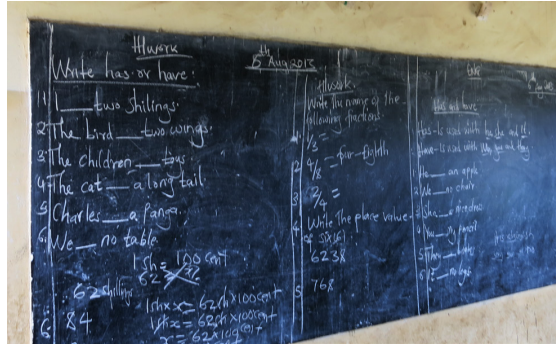 H/work
5th Aug 2013
Write has or have:
1) I ___ two shilings.
2 The bird ___ two wings.
3 The children ___ toys
4 The cat ___ a long tail
5 Charles ___ a Panga.
6 We ___ no table.
1sh = 100 cent
62
62 shillings
1sh x x = 62sh x 100 cent
1sh x = 62sh x 100 cent
x = 62 x 100 cent
6 84
H/work.
Write the name of the
following fraction.
1/3 =
2 4/8 = four-eighth
3 2/4 =
4 Write the place value
of six (6)
6238
5 768
Has and have
Has - is used with he, she and it.
Have - is used with
He ___ an apple
2 We ___ no chair
3 She ___ a nice dress
4 You ___ my pencil
5 They ___
6 It ___ no legs